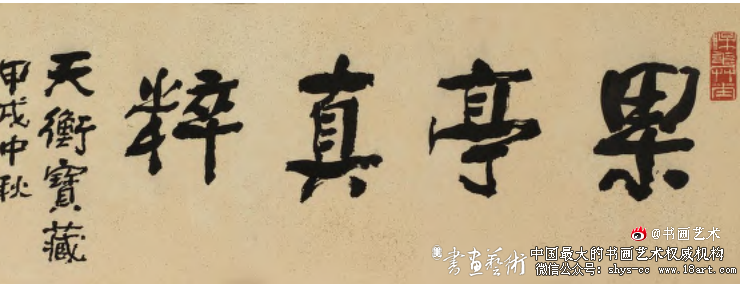 果亭真粹
天衡寶藏
甲戌中秋
@书画艺术
書画藝術
中国最大的书画艺术权威机构
微信公众号：shys-cc www.18art.com